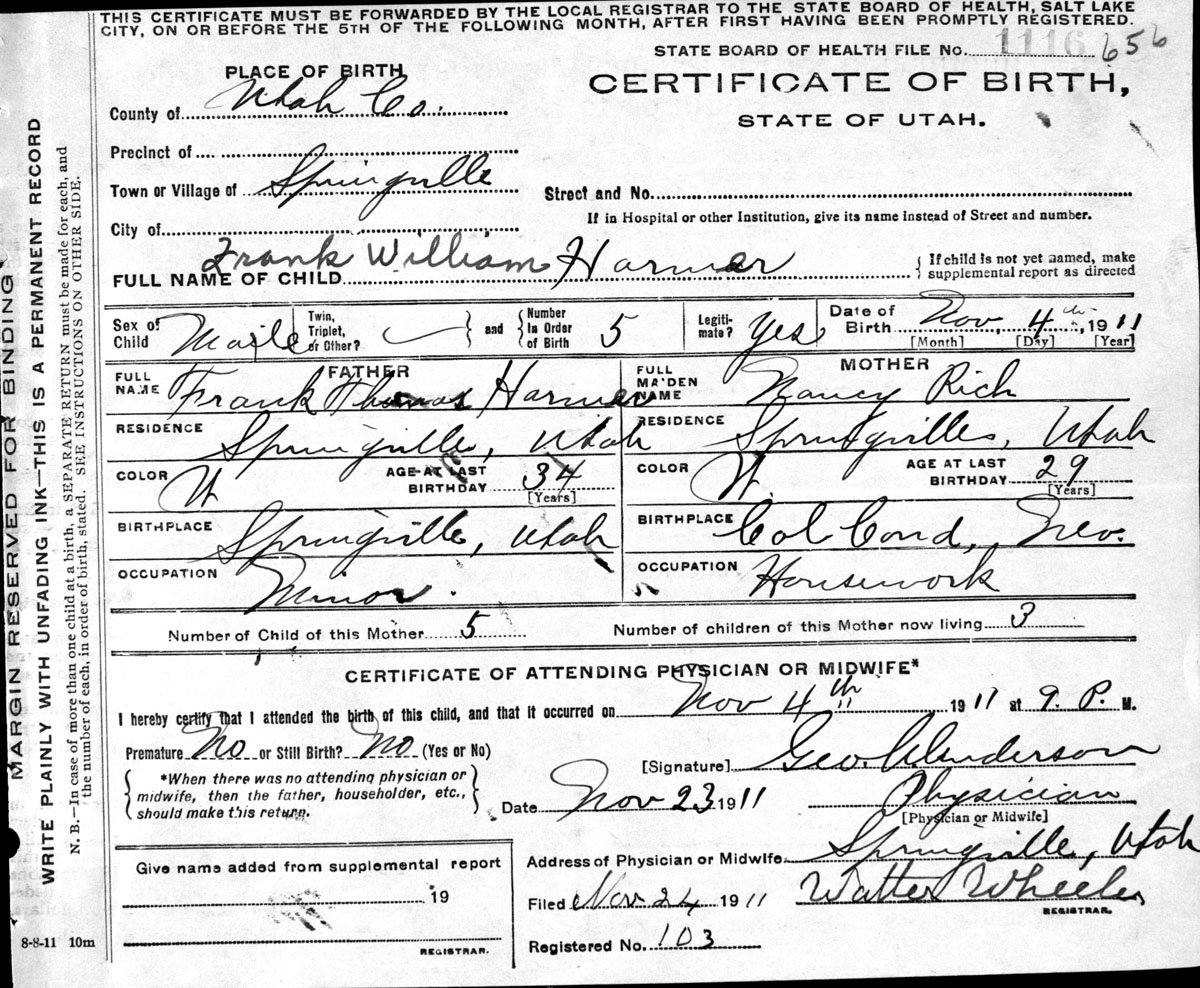 THIS CERTIFICATE MUST BE FORWARDED BY THE LOCAL REGISTRAR TO THE STATE BOARD OF HEALTH, SALT LAKE
CITY, ON OR BEFORE THE 5TH OF THE FOLLOWING MONTH, AFTER FIRST HAVING BEEN PROMPTLY REGISTERED.
STATE BOARD OF HEALTH FILE No. 1116 656
PLACE OF BIRTH
CERTIFICATE OF BIRTH,
County of Utah Co.
STATE OF UTAH.
Precinct of
Town or Village of Springville Street and No.
If in Hospital or other Institution, give its name instead of Street and number.
City of
FULL NAME OF CHILD Frank William Harmer { If child is not yet named, make
supplemental report as directed
Sex of Child Maile Twin, Triplet, or Other? } and { Number In Order of Birth 5 Legiti-mate? Yes Date of Birth Nov. 4th, 1911
[Month] [Day] [Year]
FATHER MOTHER
FULL NAME Frank Thomas Harmer FULL MAIDEN NAME Nancy Rich
RESIDENCE Springville, Utah RESIDENCE Springville, Utah
COLOR W AGE AT LAST BIRTHDAY 34 [Years] COLOR W. AGE AT LAST BIRTHDAY 29 [Years]
BIRTHPLACE Springville, Utah BIRTHPLACE Col Cond, Nev.
OCCUPATION Minor. OCCUPATION Housework
Number of Child of this Mother 5 Number of children of this Mother now living 3
CERTIFICATE OF ATTENDING PHYSICIAN OR MIDWIFE*
I hereby certify that I attended the birth of this child, and that it occurred on Nov 4th 1911 at 9. P. M.
Premature No or Still Birth? No (Yes or No)
[Signature] Geo. Anderson
{ *When there was no attending physician or
midwife, then the father, householder, etc.,
should make this return. }
Date Nov 23 1911 Physician
[Physician or Midwife]
Address of Physician or Midwife Springville, Utah
Give name added from supplemental report
19
REGISTRAR.
Filed Nov 24 1911 Walter Wheeler
REGISTRAR.
Registered No. 103
8-8-11 10m
MARGIN RESERVED FOR BINDING
WRITE PLAINLY WITH UNFADING INK—THIS IS A PERMANENT RECORD
N. B.—In case of more than one child at a birth, a SEPARATE RETURN must be made for each, and
the number of each, in order of birth, stated. SEE INSTRUCTIONS ON OTHER SIDE.